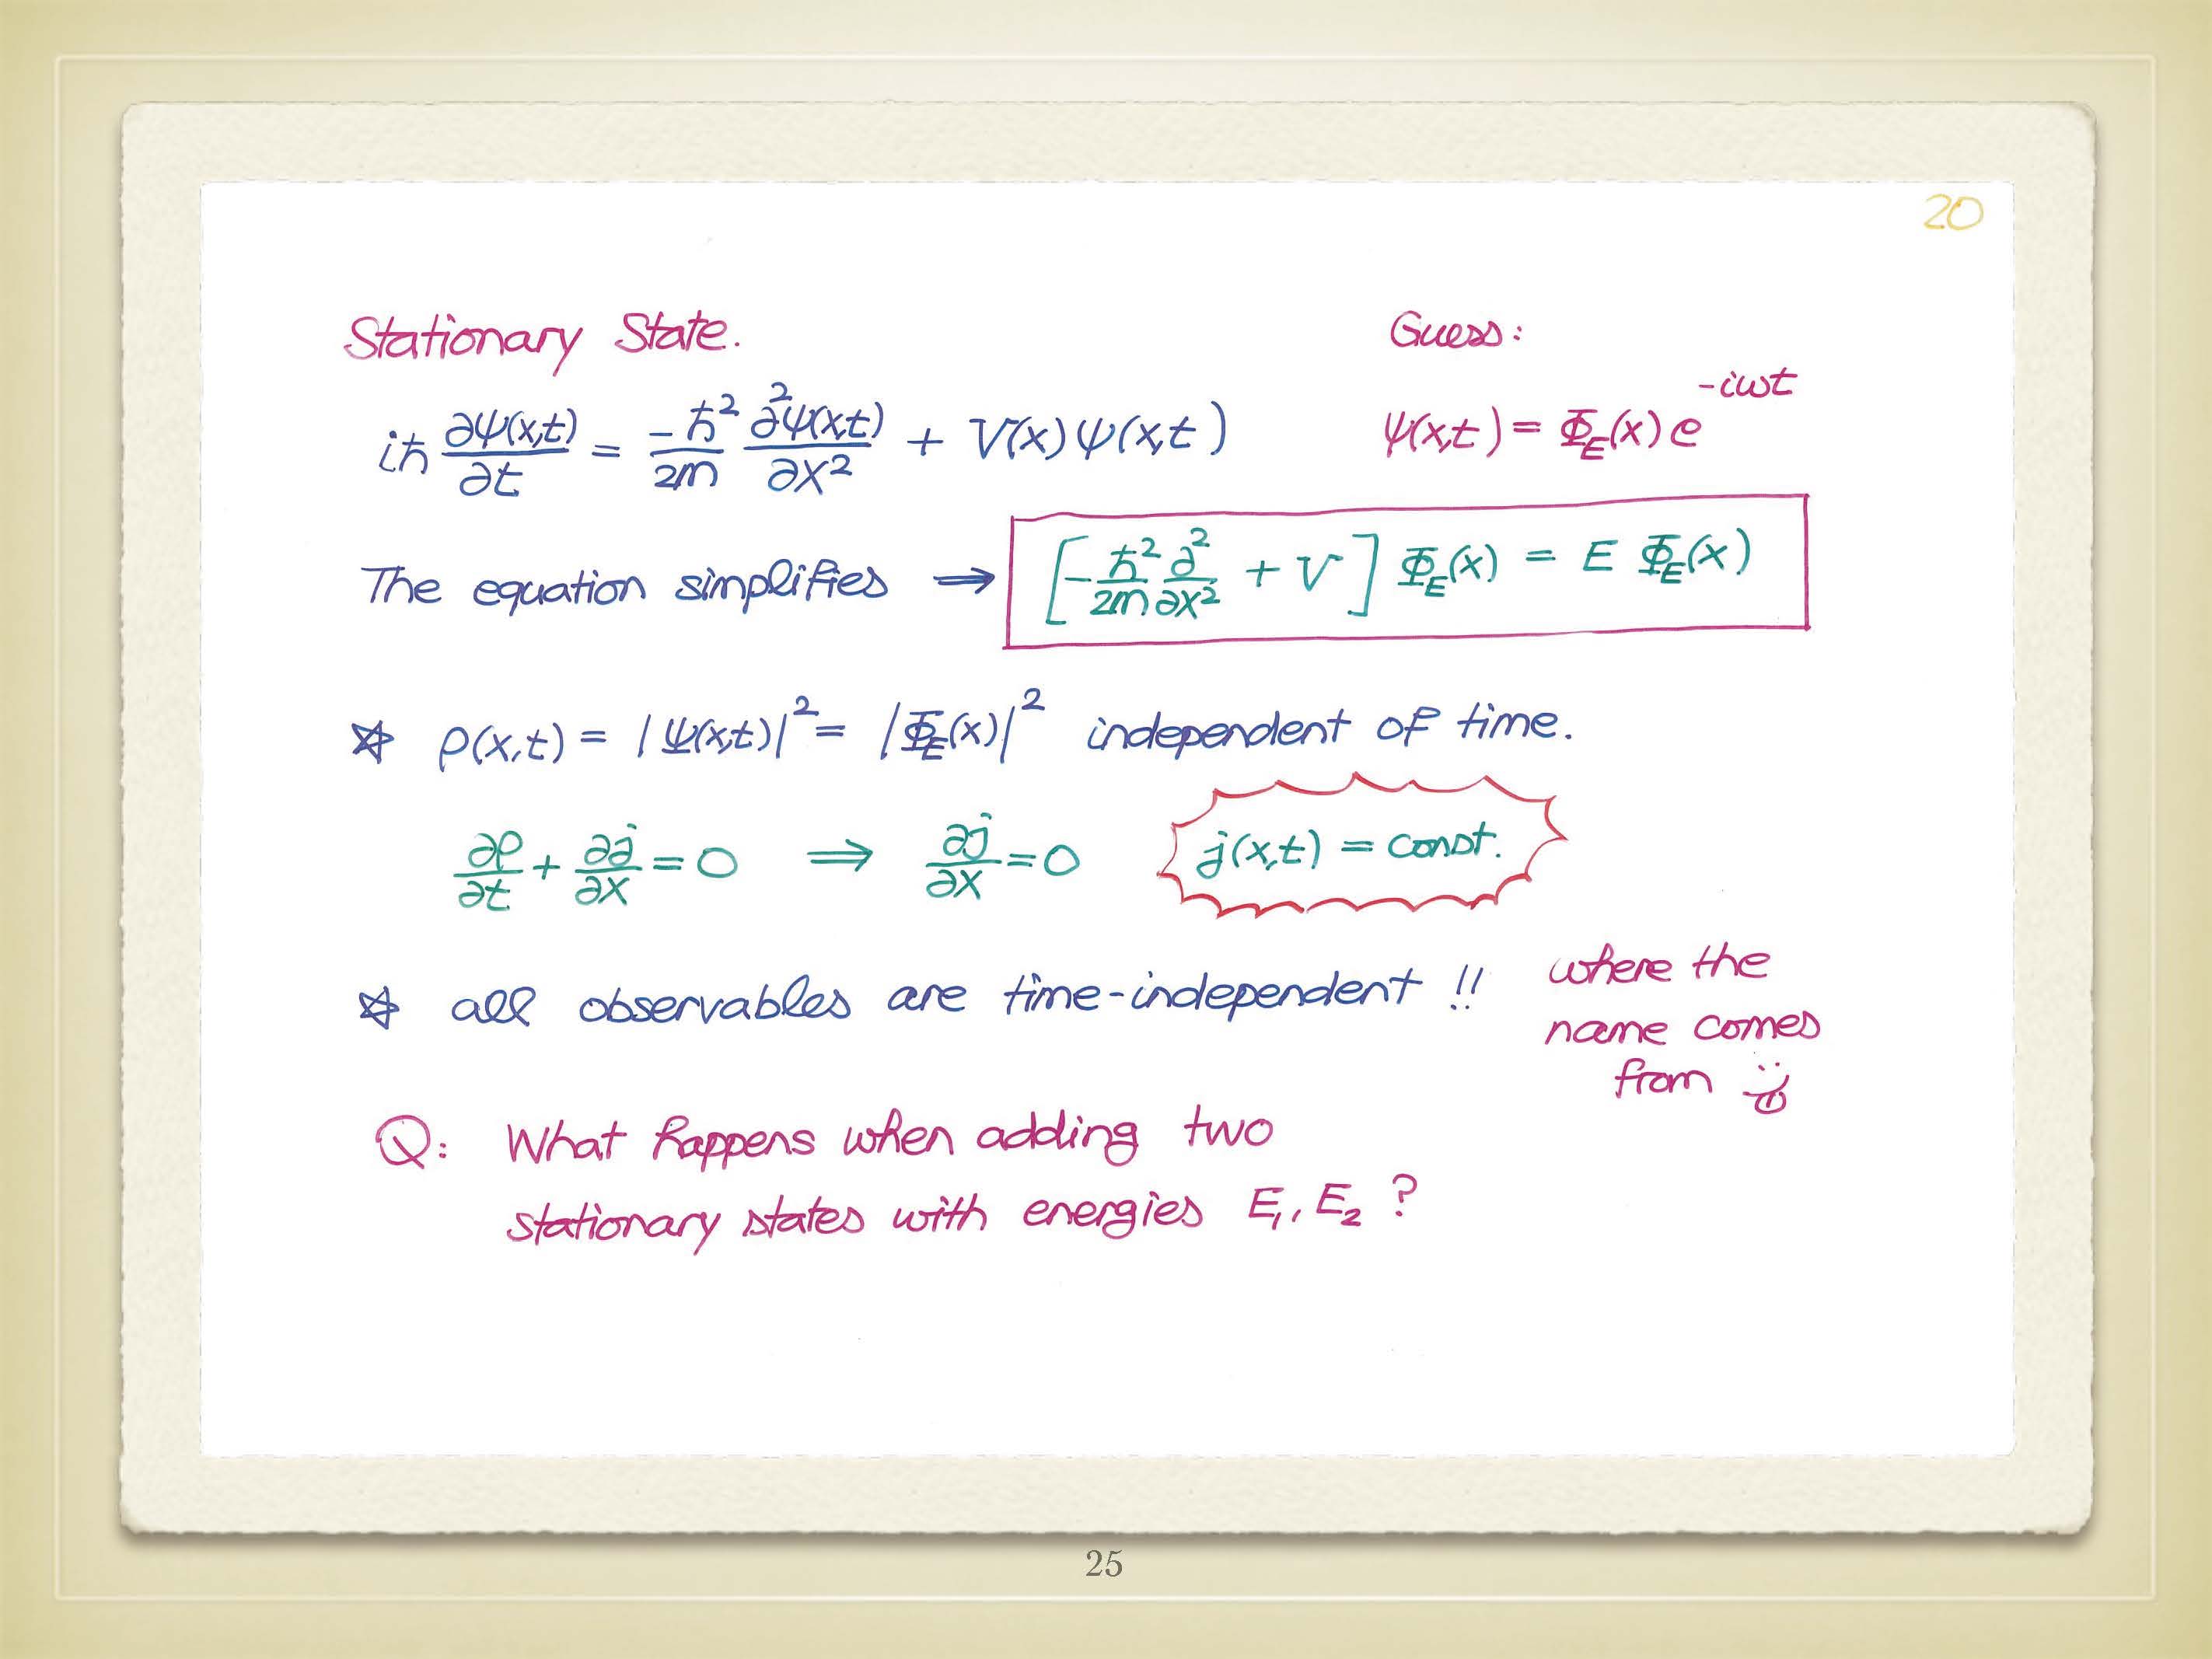 20
Stationary State.
Guess:
iℏ ∂ψ(x,t)/∂t = -ℏ²/2m ∂²ψ(x,t)/∂x² + V(x)ψ(x,t)
ψ(x,t) = Φ_E(x) e^{-iωt}
The equation simplifies ⇒ [-ℏ²/2m ∂²/∂x² + V] Φ_E(x) = E Φ_E(x)
☆ ρ(x,t) = |Ψ(x,t)|² = |Φ_E(x)|² independent of time.
∂ρ/∂t + ∂j/∂x = 0 ⇒ ∂j/∂x = 0 j(x,t) = const.
☆ all observables are time-independent !!
where the
name comes
from
Q: What happens when adding two
stationary states with energies E₁, E₂ ?
25